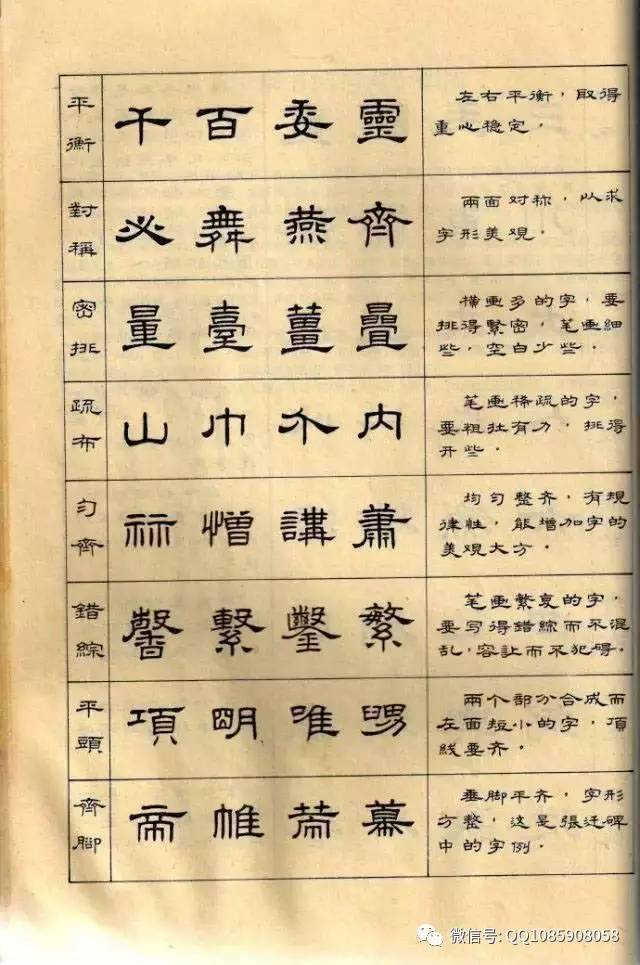 平衡
千百委靈
左右平衡，取得
重心稳定。
對稱
必舞燕齊
兩面对称，以求
字形美观。
密排
量臺薑疊
橫画多的字，要
排得緊密，笔画細
些，空白少些。
疏布
山巾介内
笔画稀疏的字，
要粗壮有力，排得
开些。
匀齊
憎講蕭
均匀整齐，有規
律性，能增加字的
美观大方。
錯綜
馨繫鑿繁
笔画繁复的字，
要写得錯綜而不混
乱，容让而不犯碍。
平頭
項眀唯
兩个部分合成而
左面短小的字，頂
线要齐。
齊腳
帝帷幕
垂脚平齐，字形
方整，这是張迁碑
中的字例。
微信号: QQ1085908058